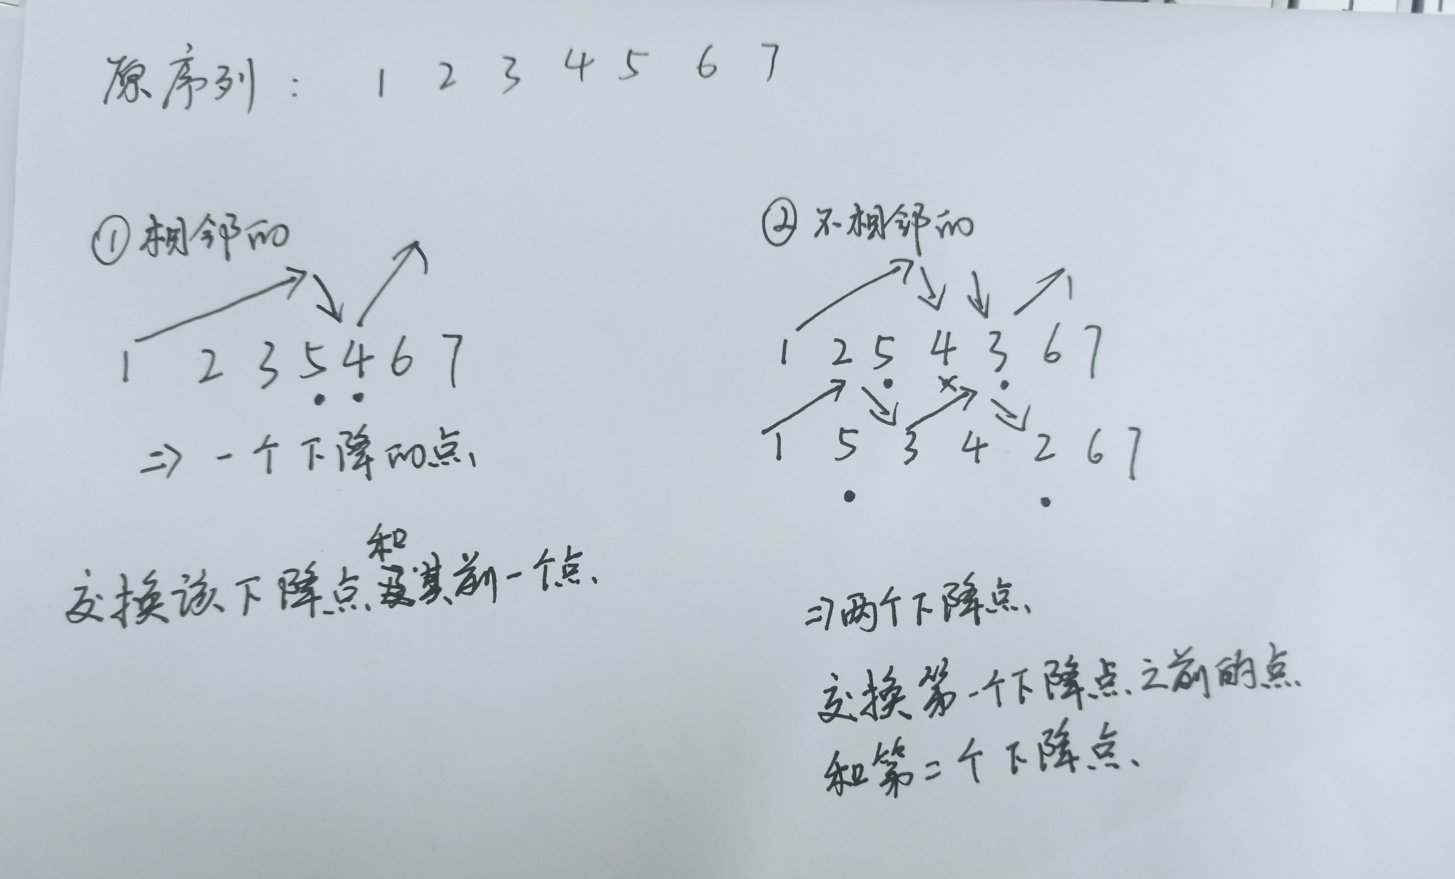 原序列： 1 2 3 4 5 6 7
①相邻的
1 2 3 5 4 6 7
⇒ 一个下降的点
和
交换该下降点其前一个点
②不相邻的
1 2 5 4 3 6 7
1 5 3 4 2 6 7
⇒两个下降点
交换第一个下降点之前的点
和第二个下降点